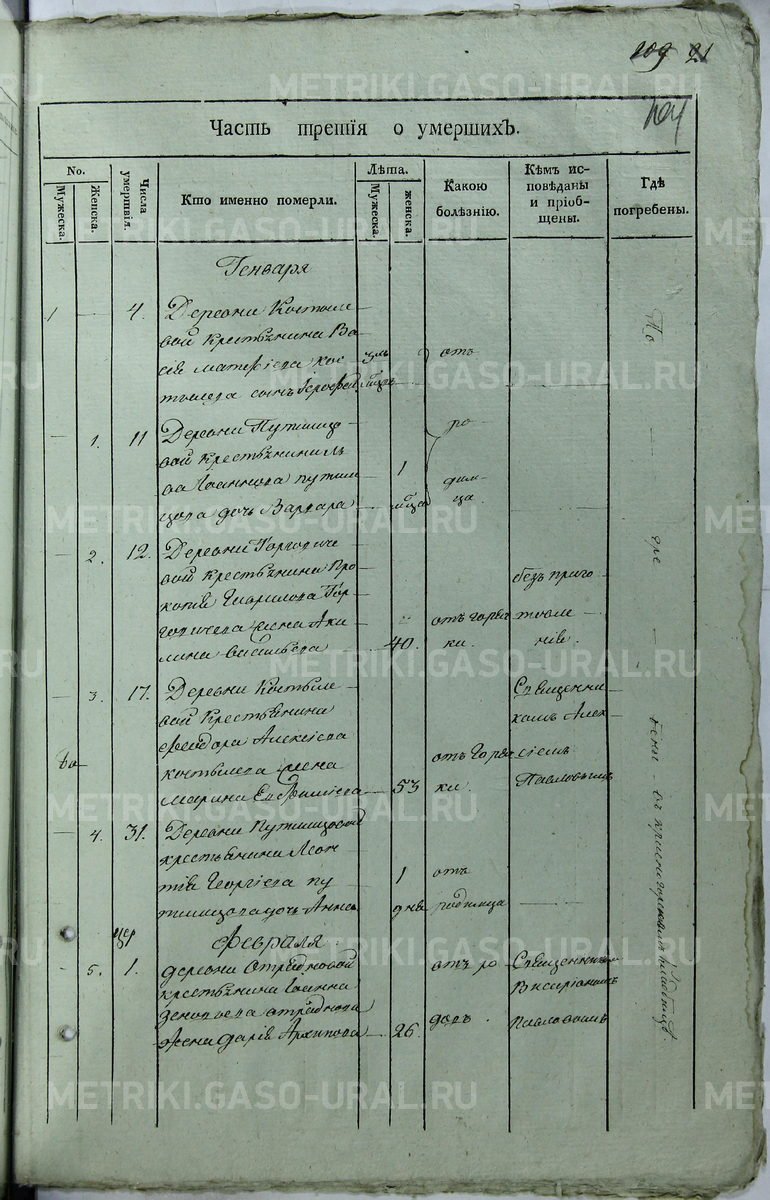 109 21
104
Часть третія о умершихъ.
No.
Мужеска.
Женска.
Числа умертвія.
Кто именно померли.
Лѣта.
Мужеска.
женска.
Какою болѣзнію.
Кѣмъ исповѣданы и пріобщены.
Гдѣ погребены.
Генваря
1 4. Деревни Костыле
вой крестьянина Ва
сія Матфіева Кос
тылева сынъ
отъ
1. 11 Деревни Путилцо
вой крестьянина Ль
ва Іоаннова Путил 1
цова дочь Варвара
ро
дим
ца.
2. 12. Деревни
вой крестьянина Про
копія Гаврилова Гор
жена Аки
лина Васильева 40.
отъ горяч
ки.
безъ приго
товле
нія.
3. 17. Деревни Костыле
вой крестьянина
Феодора Алексіева
Костылева жена
Марина Евфиміева 53
отъ горяч
ки.
Священни
комъ Алек
сіемъ
Павловымъ
4. 31. Деревни Путилцовой
крестьянина Леон
тія Георгіева Пу 1
тилцова дочь Анна дня
отъ
родимца
Февраля
5. 1. деревни Отрадновой
крестьянина Іоанна
Отраднова
жена Дарія Архипова 26.
отъ ро
довъ.
Священникомъ
Висаріономъ
Павловымъ
По
гре
бены въ Красногорскомъ кладбищѣ.
METRIKI.GASO-URAL.RU